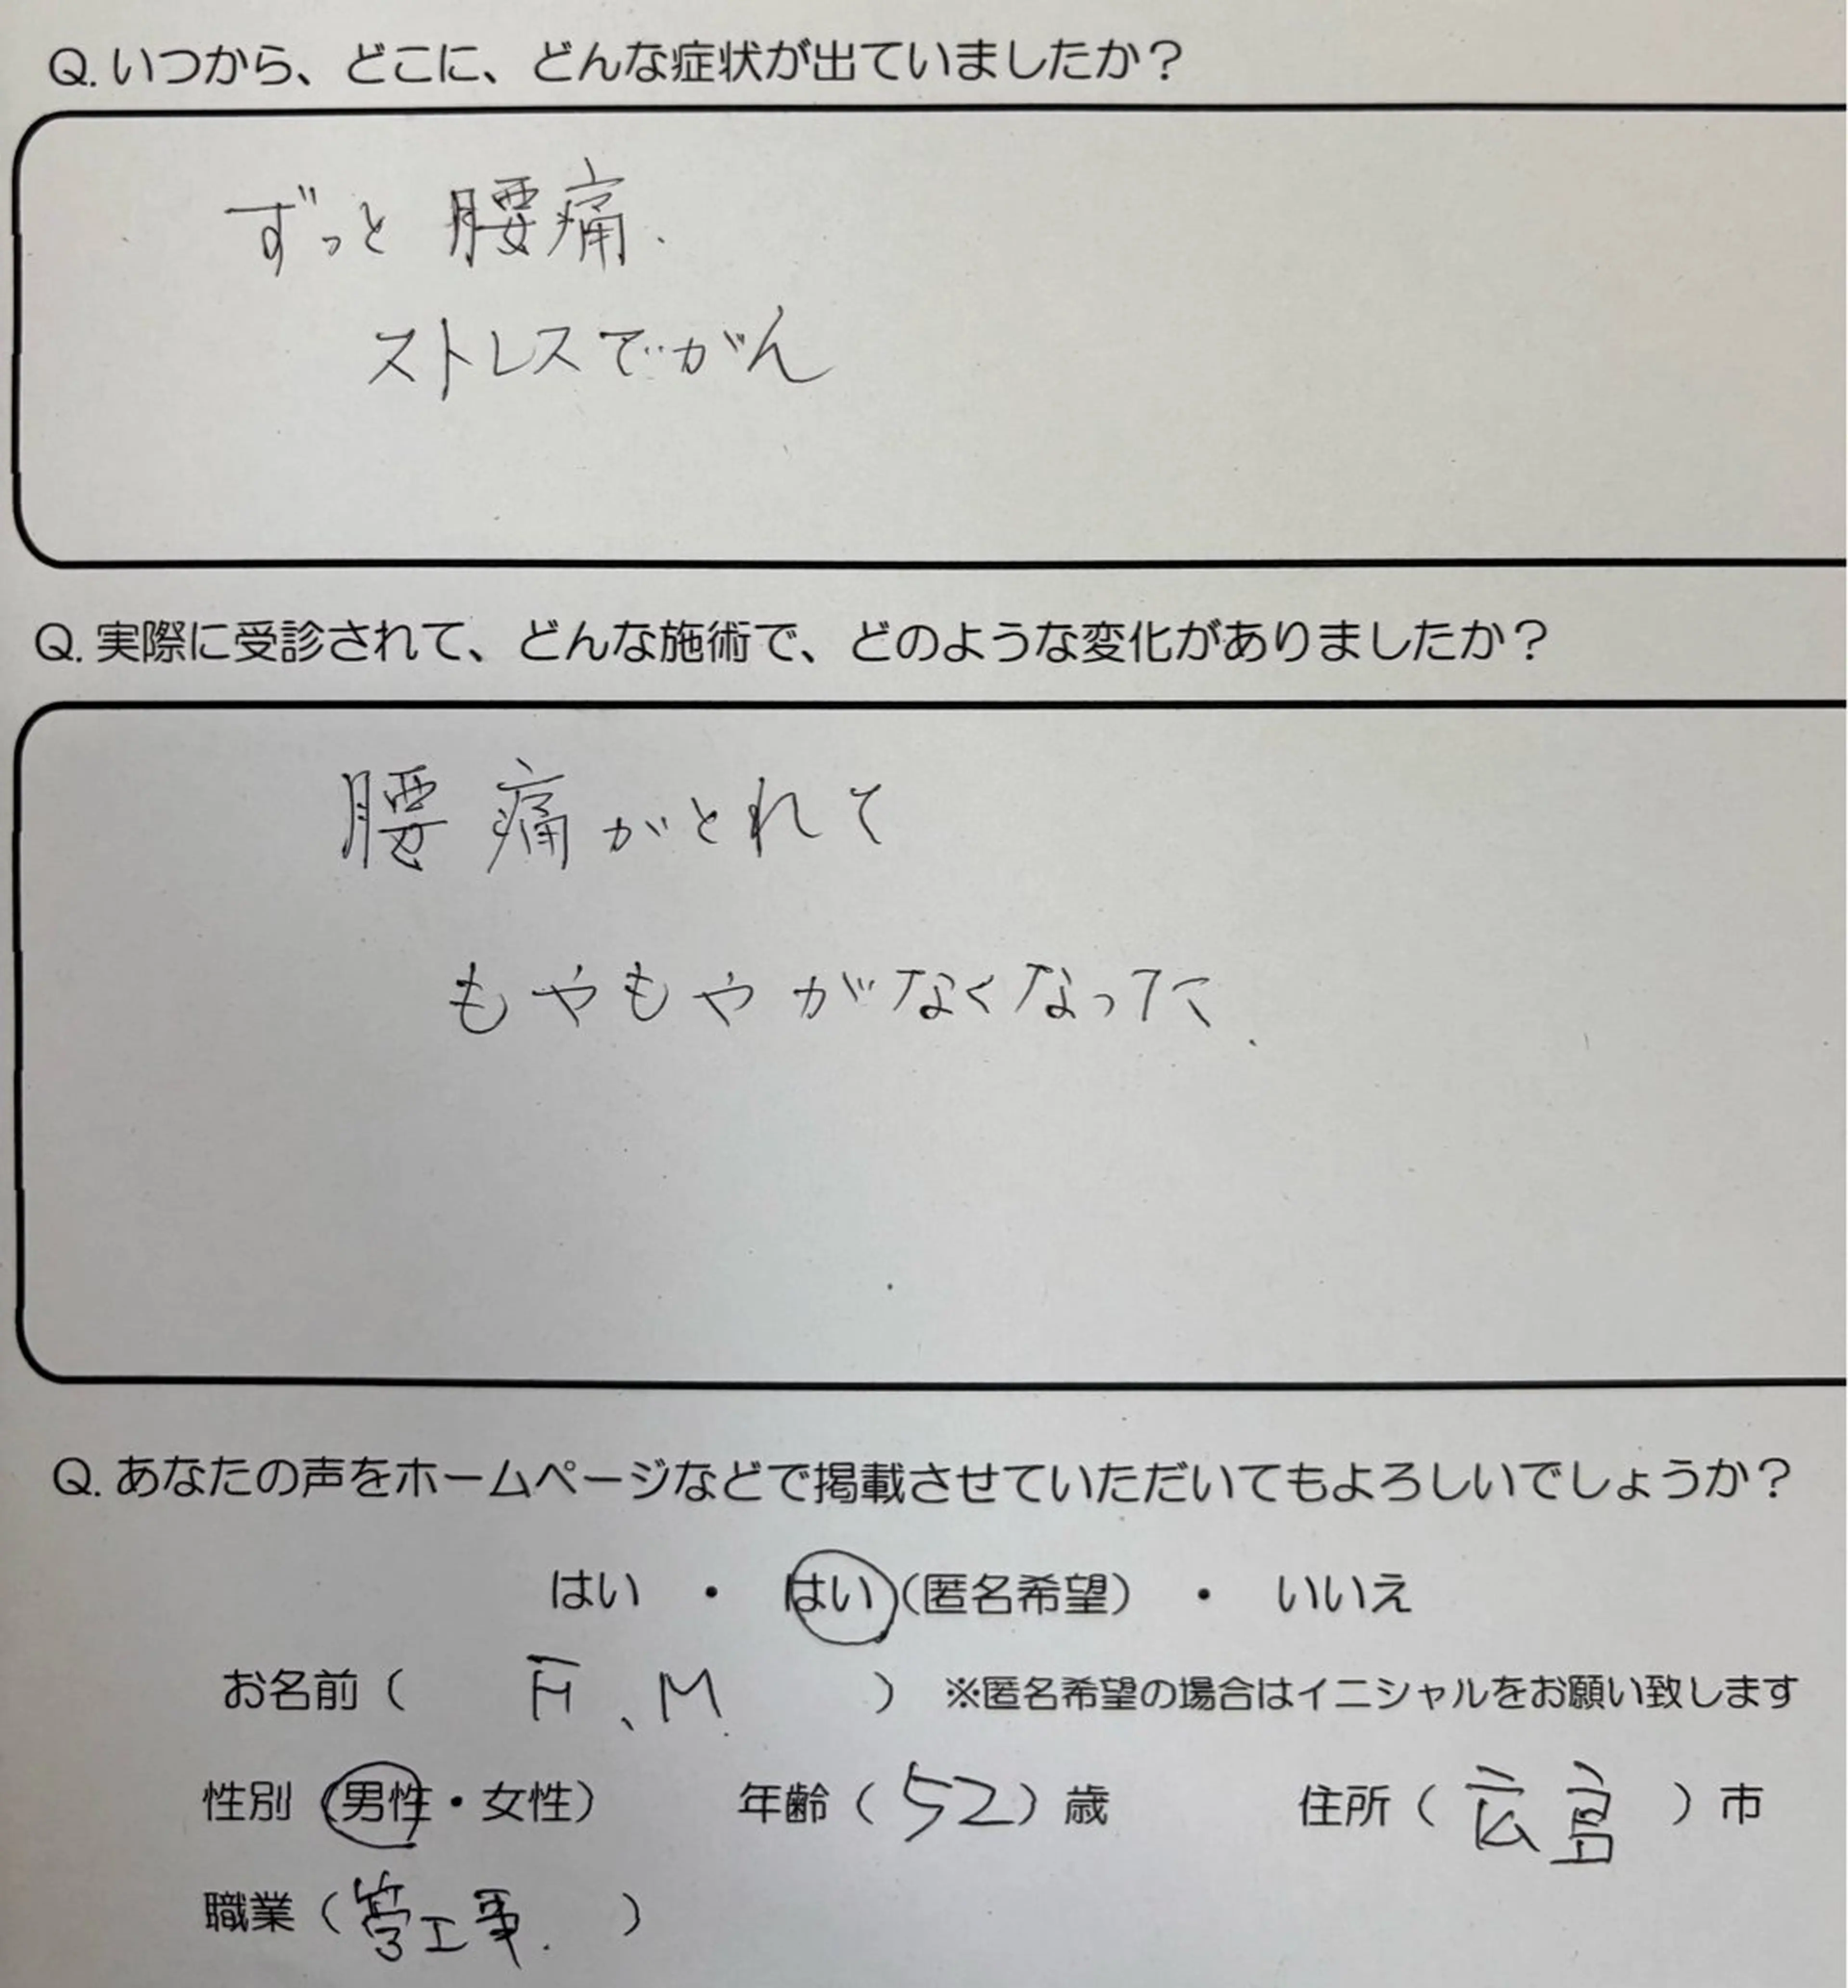 Q. いつから、どこに、どんな症状が出ていましたか？
ずっと 腰痛.
ストレスでがん
Q. 実際に受診されて、どんな施術で、どのような変化がありましたか？
腰痛がとれて
もやもやがなくなった.
Q. あなたの声をホームページなどで掲載させていただいてもよろしいでしょうか？
はい ・ はい（匿名希望） ・ いいえ
お名前（ H、M. ） ※匿名希望の場合はイニシャルをお願い致します
性別（男性・女性） 年齢（52）歳 住所（広島）市
職業（管工事.）